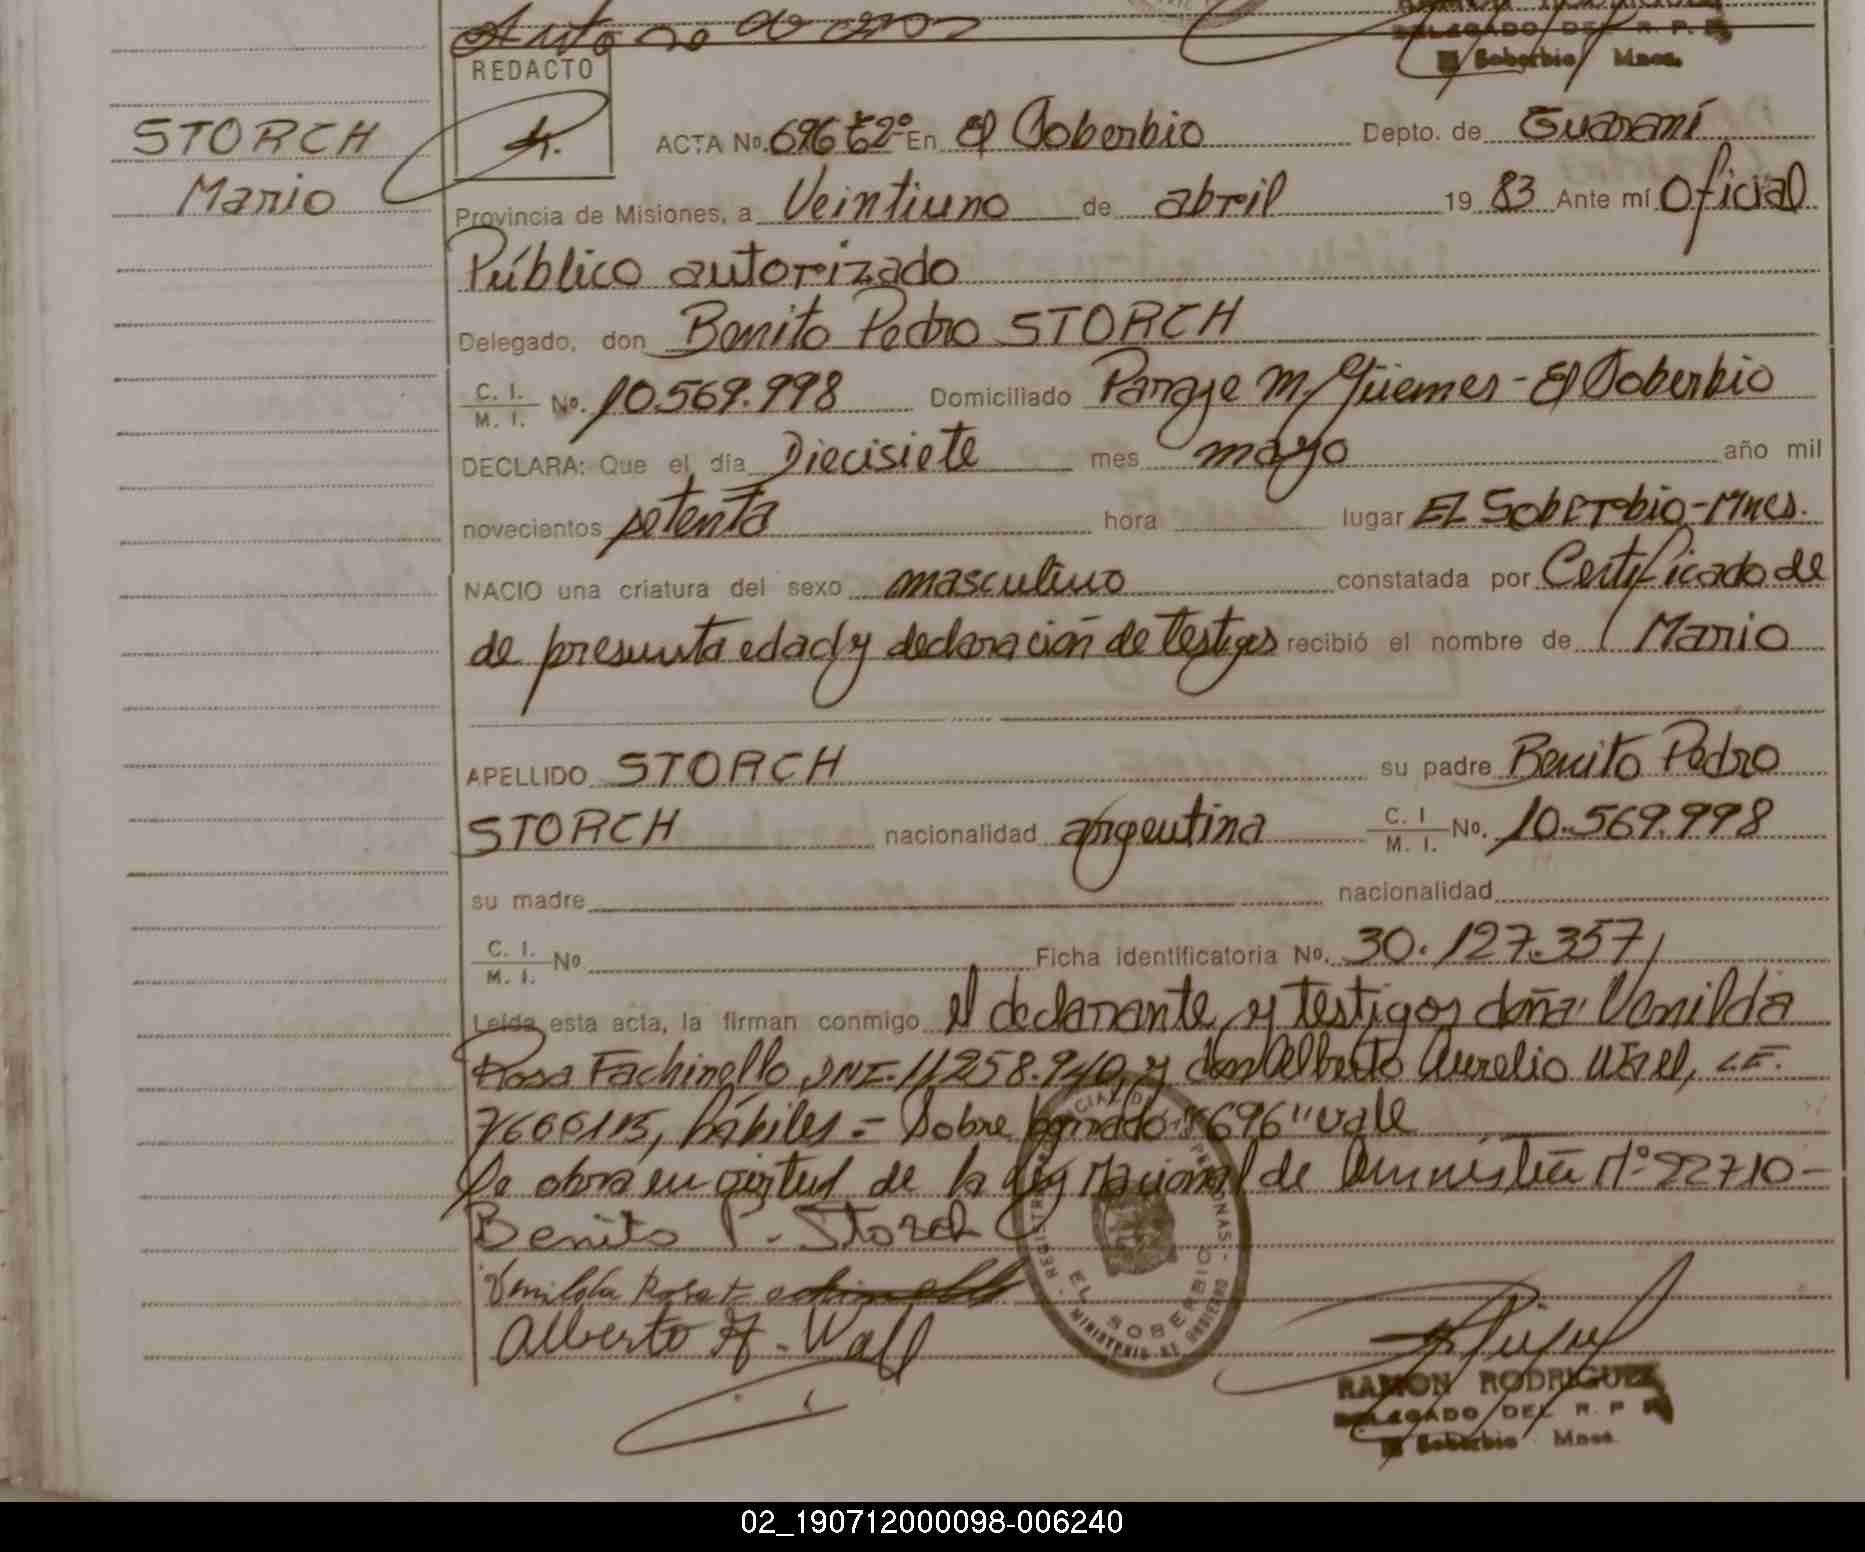 REDACTO
STORCH
Mario
ACTA No. 696 t2º En El Soberbio Depto. de Guaraní
Provincia de Misiones, a Veintiuno de abril 19 83 Ante mí Oficial
Público autorizado
Delegado, don Benito Pedro STORCH
C. I. M. I. No. 10.569.998 Domiciliado Paraje M. Güemes - El Soberbio
DECLARA: Que el día Diecisiete mes mayo año mil
novecientos setenta hora lugar EL Soberbio-Mnes.
NACIO una criatura del sexo masculino constatada por Certificado de
de presunta edad y declaración de testigos recibió el nombre de Mario
APELLIDO STORCH su padre Benito Pedro
STORCH nacionalidad argentina C. I M. I. No. 10.569.998
su madre nacionalidad
C. I. M. I. No Ficha identificatoria No. 30.127.357
Leída esta acta, la firman conmigo el declarante y testigos doña Venilda
Rosa Fachinello DNI. 11258.940, y don Alberto Aurelio L.E.
hábiles.- Sobre borrado "696" vale
Se obra en virtud de la Ley Nacional de Amnistía Nº 22710-
Benito P. Storch
Venilda Rosa Fachinello
Alberto A. Wall
EL SOBERBIO
MINISTERIO DE GOBIERNO
RAMON RODRIGUEZ
DELEGADO DEL R. P. P
El Soberbio Mnes.
02_190712000098-006240